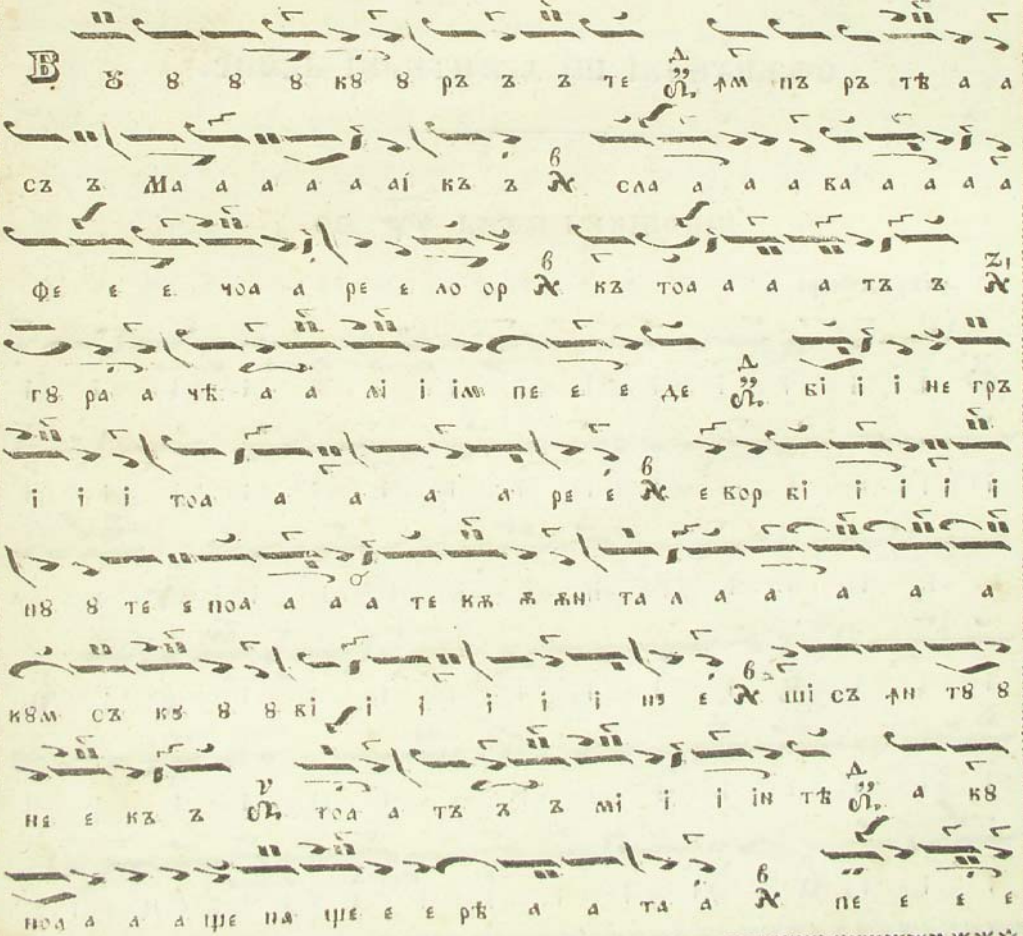 Б ꙋ 8 8 8 к8 8 ръ ъ ъ те ꙟм пъ ръ тѣ а а
съ ъ Ма а а а а аі къ ъ сла а а а ва а а а а
фе е е чоа а ре е ло ор къ тоа а а а тъ ъ
г8 ра а чѣ а а лі і імь пе е е де ві і і не гръ
і і і тоа а а а а ре е е вор ві і і і і
н8 8 те е поа а а а те кѫ ѫ ѫн та л а а а а а
к8м съ кꙋ 8 8 ві і і і і і нэ е ші съ ꙟн т8 8
не е къ ъ тоа а тъ ъ ъ мі і і ін тѣ а к8
ноа а а а ще на ще е е рѣ а а та а пе е е е